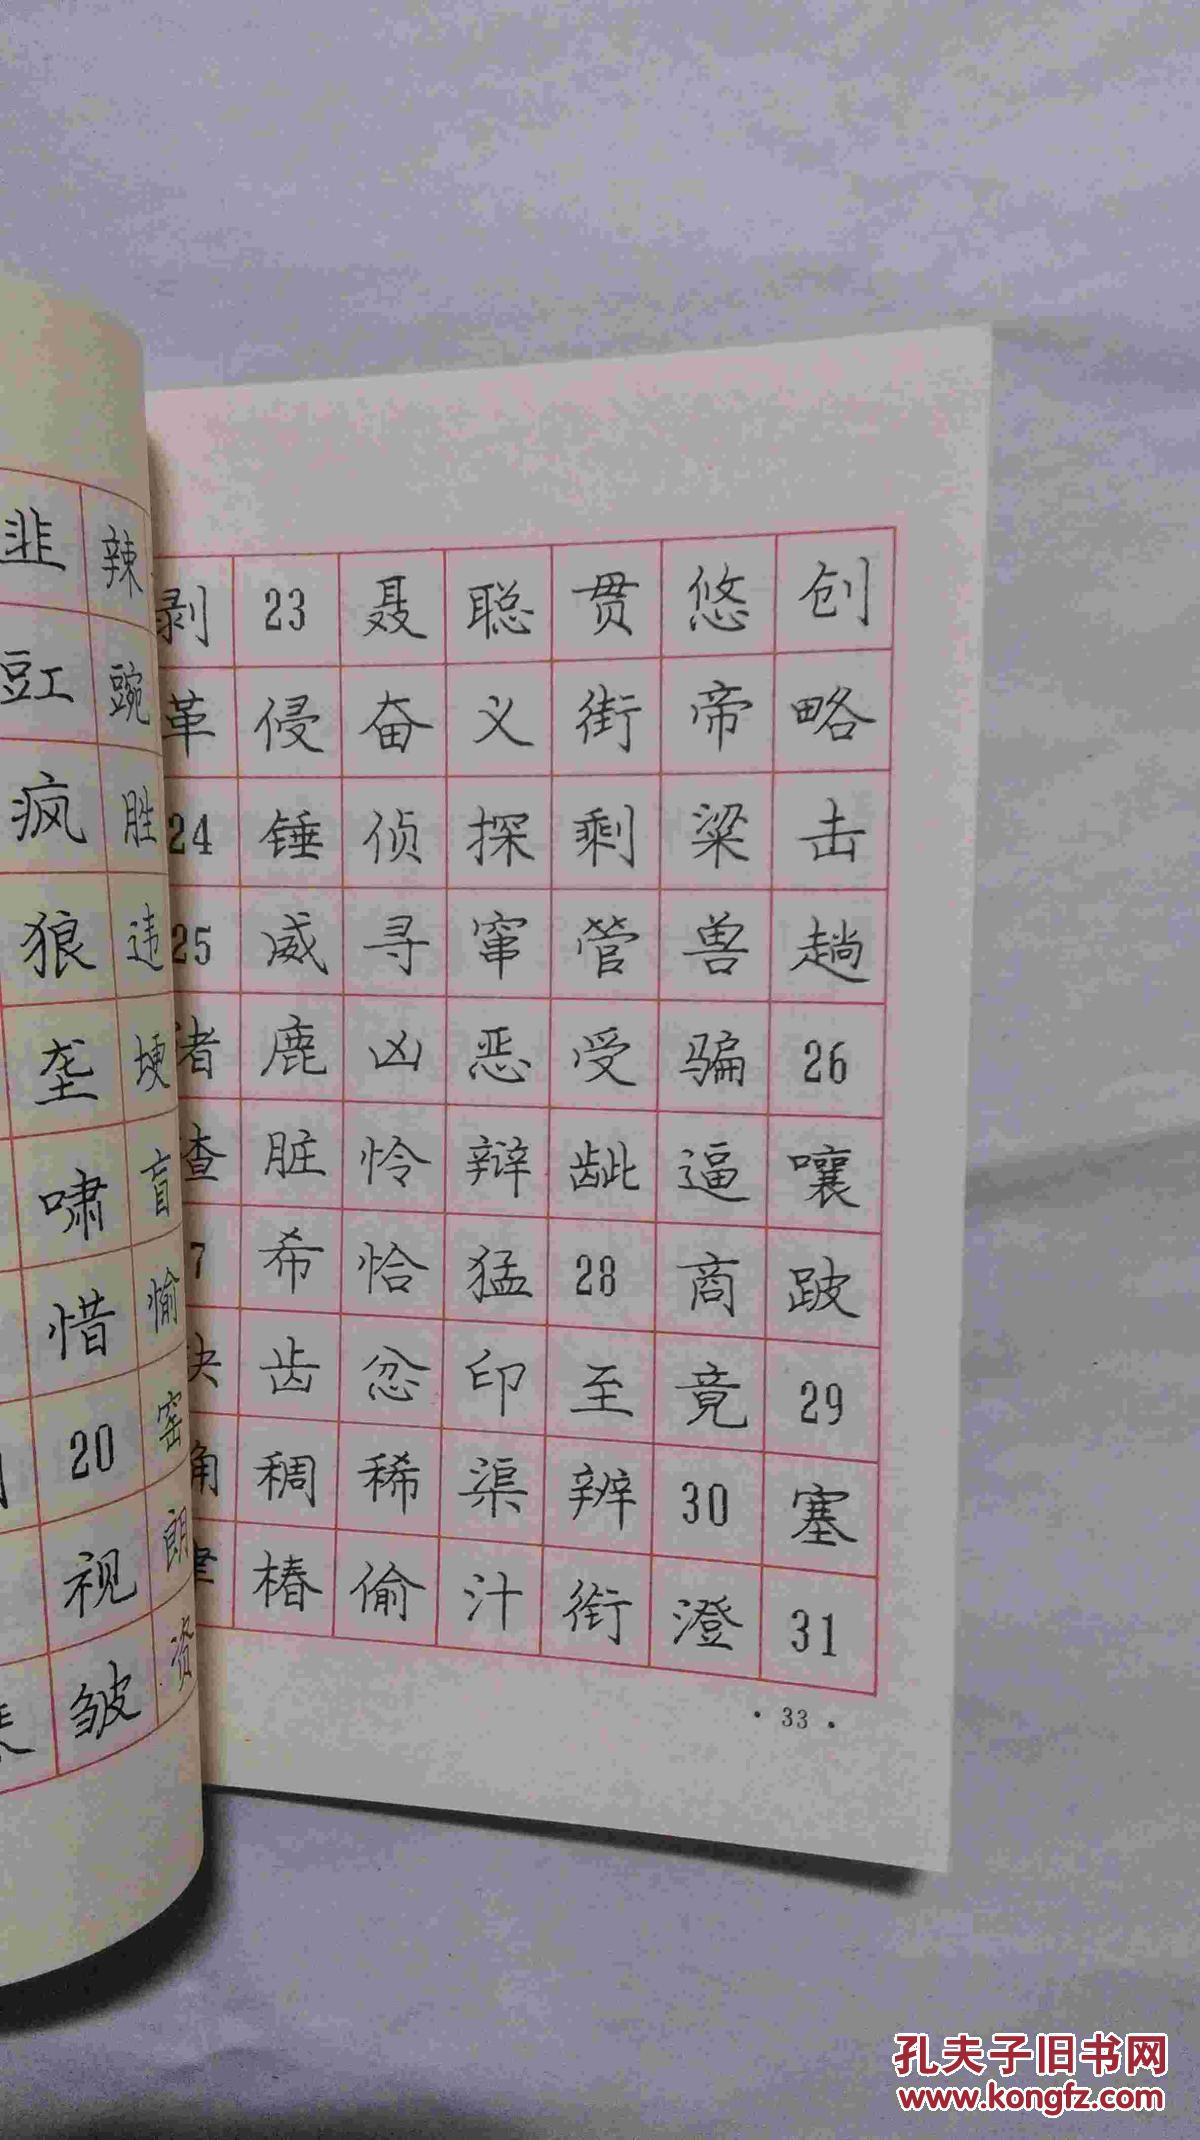 韭 辣
豇 豌
疯 胜
狼 违
垄 埂
啸 盲
惜 愉
20 窑
视 朗
皱 资
剥 23 聂 聪 贯 悠 创
革 侵 奋 义 街 帝 略
24 锤 侦 探 剩 梁 击
25 威 寻 窜 管 兽 趟
鹿 凶 恶 受 骗 26
渣 脏 怜 辩 龇 逼 嚷
7 希 恰 猛 28 商 跛
齿 忿 印 至 竟 29
稠 稀 渠 辨 30 塞
椿 偷 汁 衔 澄 31
· 33 ·
孔夫子旧书网
www.kongfz.com